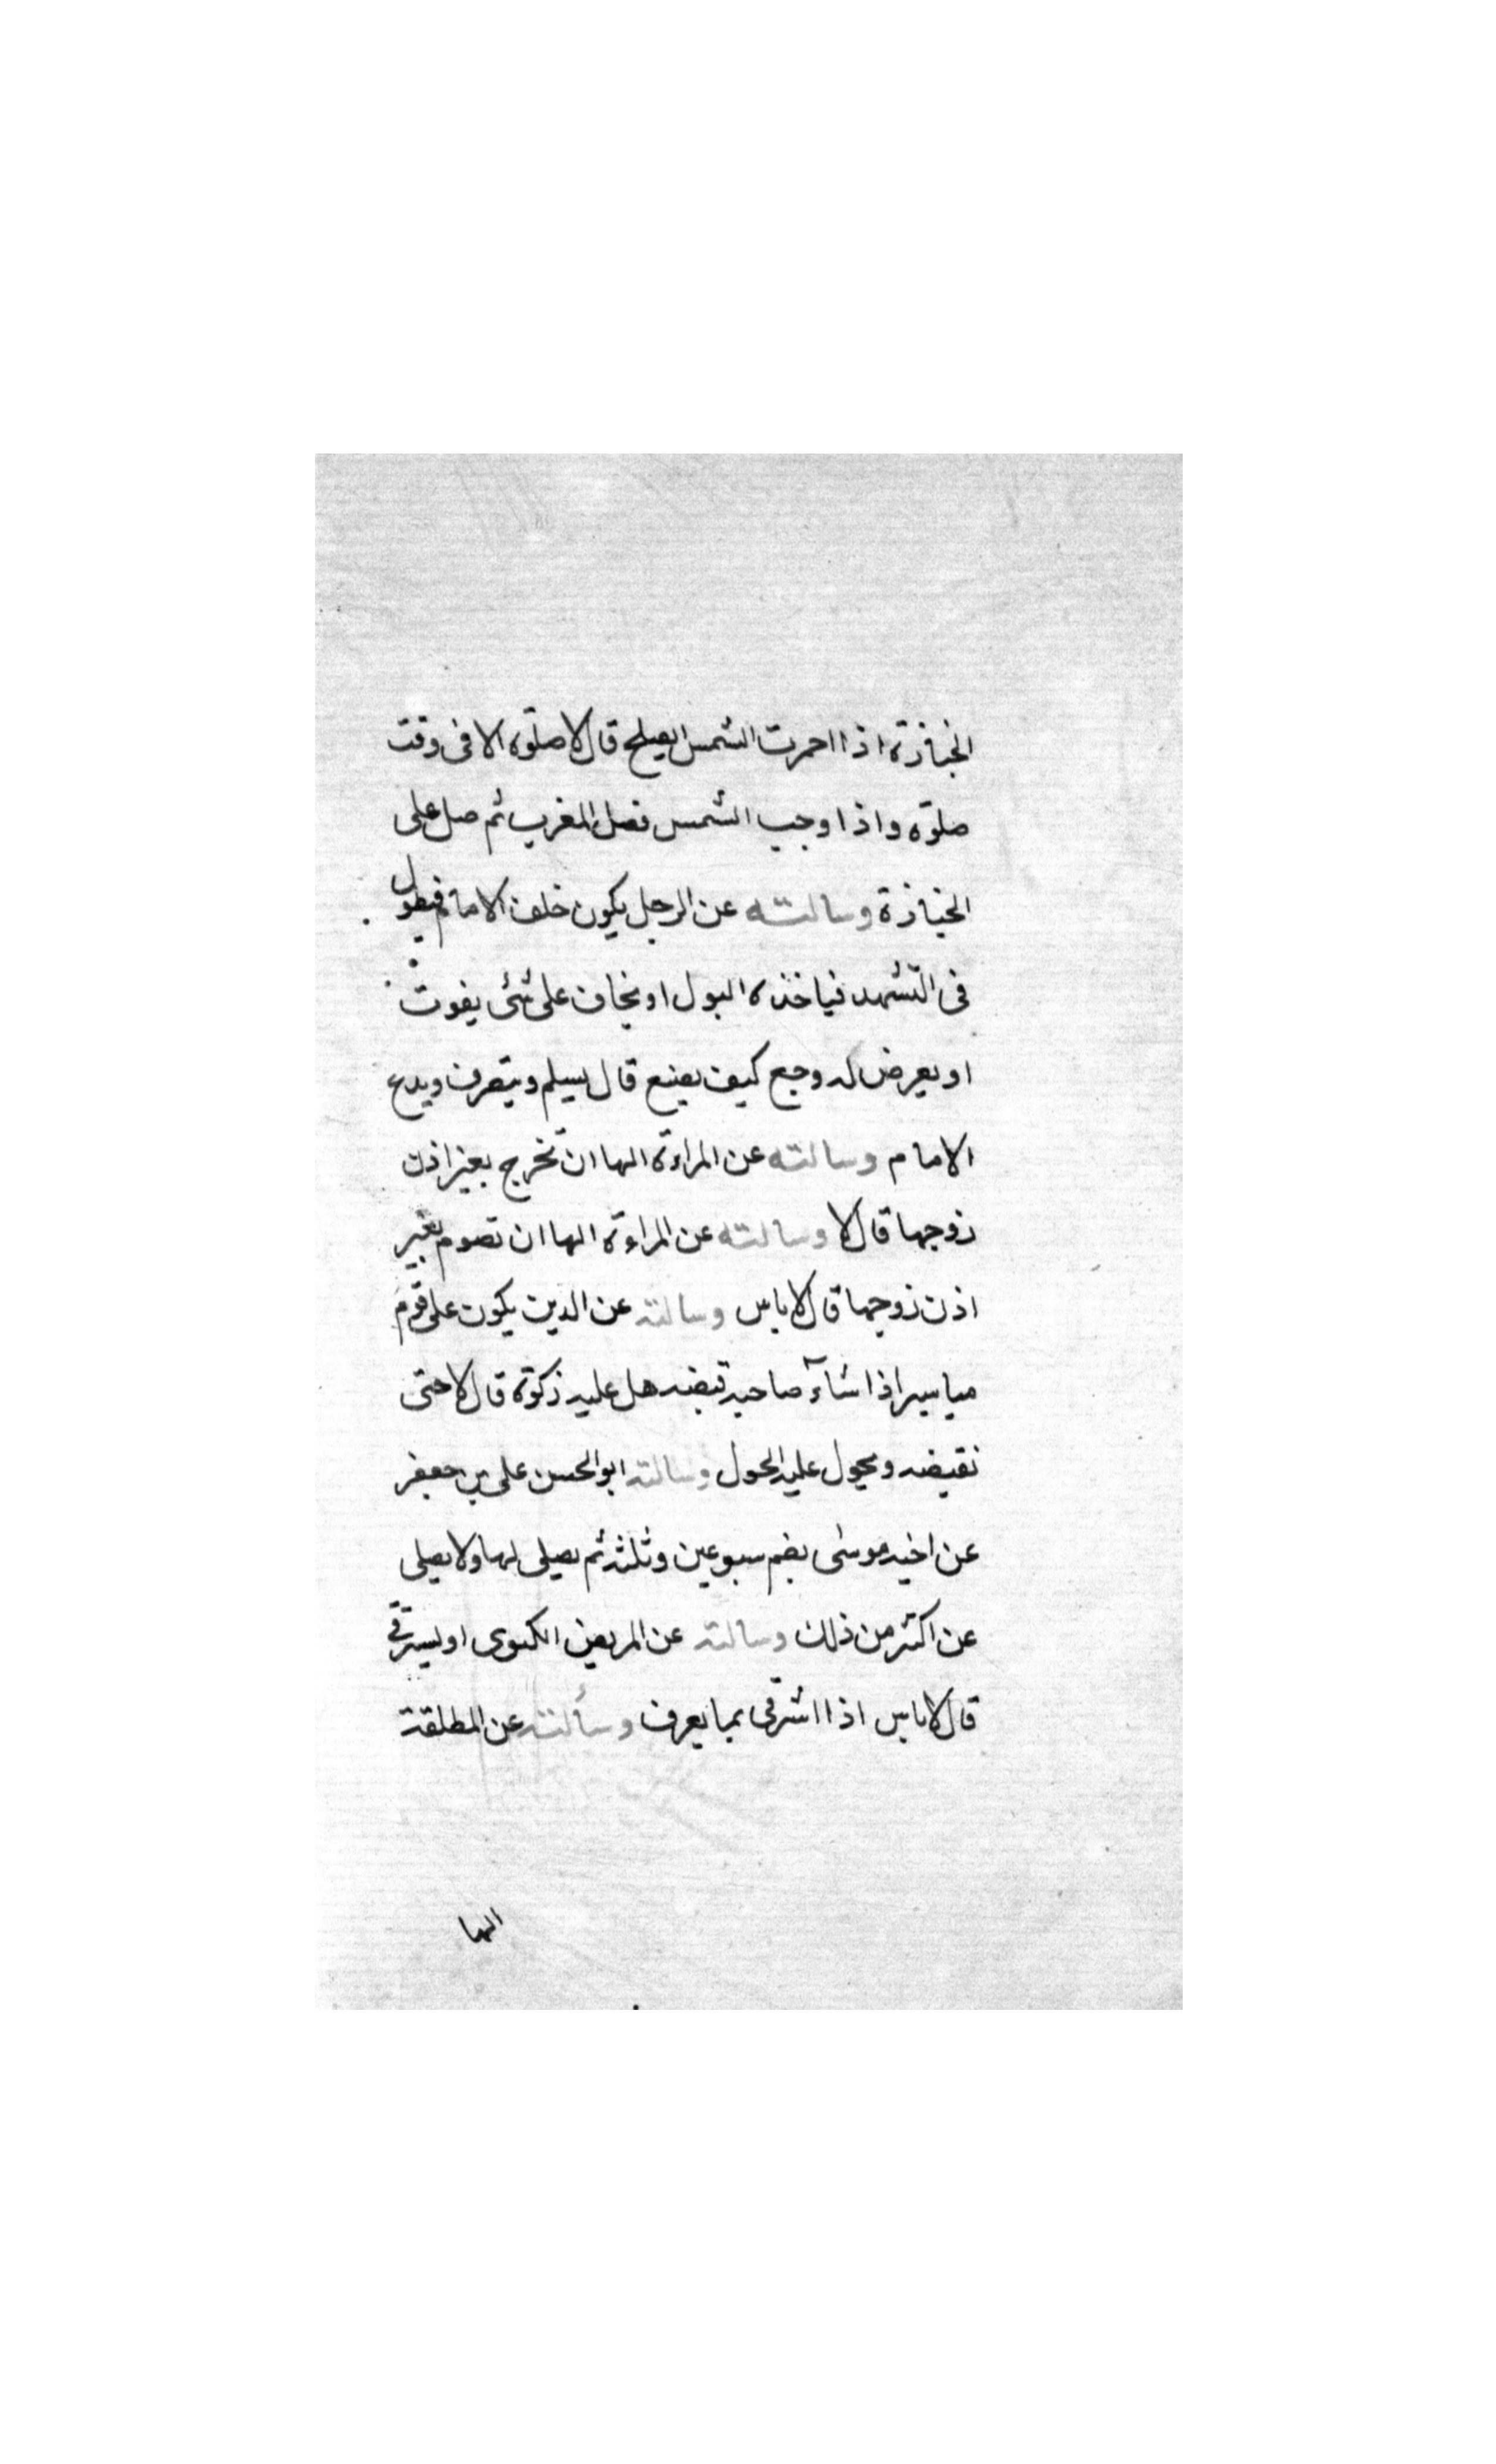 الجنازة اذا احمرت الشمس ايصلح قال لا صلوة الا فى وقت
صلوة واذا وجب الشمس فصل المغرب ثم صل على
الجنازة وسالته عن الرجل يكون خلف الامام فيطول
فى التشهد فياخذه البول او يخاف على شئ يفوت
او يعرض له وجع كيف يصنع قال يسلم وينصرف ويدع
الامام وسالته عن المراءة الها ان تخرج بغير اذن
زوجها قال لا وسالته عن المراءة الها ان تصوم بغير
اذن زوجها قال لا باس وسالته عن الدين يكون على قوم
مياسير اذا شاء صاحبه قبضه هل عليه زكوة قال لا حتى
نقبضه ويحول عليه الحول وسالته ابو الحسن على بن جعفر
عن اخيه موسى يضم سبوعين وثلثه ثم يصلى لها ولا يصلى
عن اكثر من ذلك وسالته عن المريض ايكتوى او يسترقى
قال لا باس اذا اشرقى بما يعرف وسألته عن المطلقة
الها